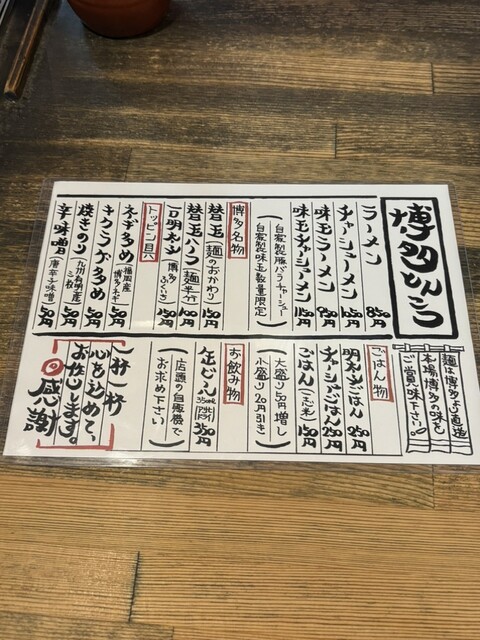 博多とんこつ
ラーメン 850円
チャーシューメン 1050円
味玉ラーメン 950円
味玉チャーシューメン 1150円
(自家製豚バラチャーシュー
自家製味玉数量限定)
博多名物
替玉(麺のおかわり) 150円
替玉ハーフ(麺半分) 100円
一口明太子(博多ふくいち) 150円
トッピング具
ネギ多め(福岡産博多ネギ) 150円
キクラゲ多め 100円
焼きのり(九州有明産三枚) 100円
辛味噌(唐辛子味噌) 50円
麺は博多より直送
本場博多の味を
ご賞味下さい。
ごはん物
明太ごはん 250円
チャーシューごはん 250円
ごはん(こしひかり米) 150円
大盛り50円増し
小盛り20円引き
お飲み物
缶ビール 350ml 350円
(店頭の自販機で
お求め下さい)
一杯一杯
心を込めて、
お作りします。
感謝